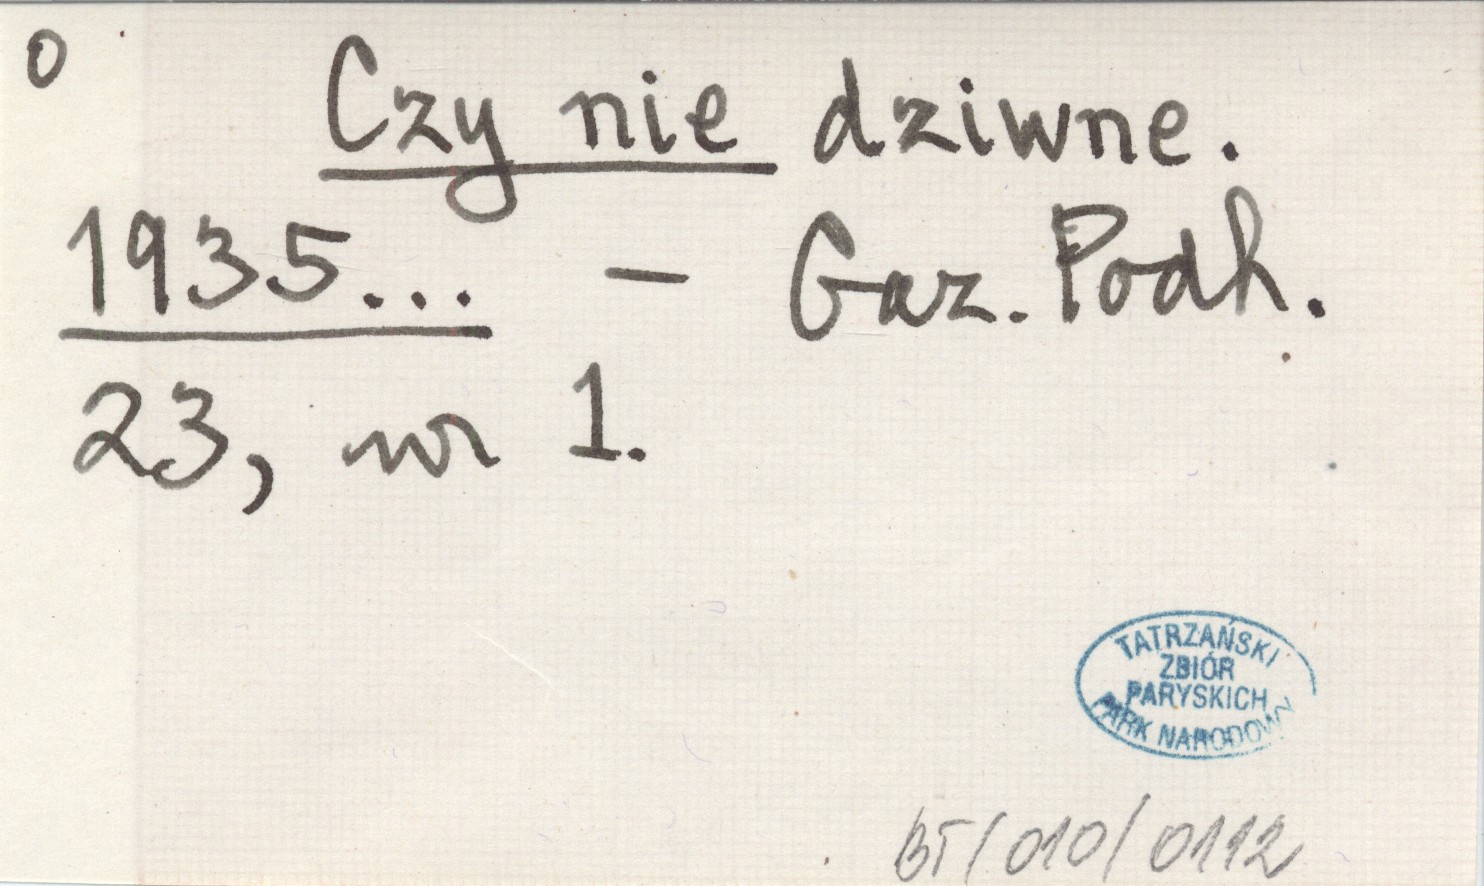 0
Czy nie dziwne.
1935... – Gaz. Podh.
23, nr 1.
TATRZAŃSKI
ZBIÓR
PARYSKICH
PARK NARODOWY
BT/010/0112